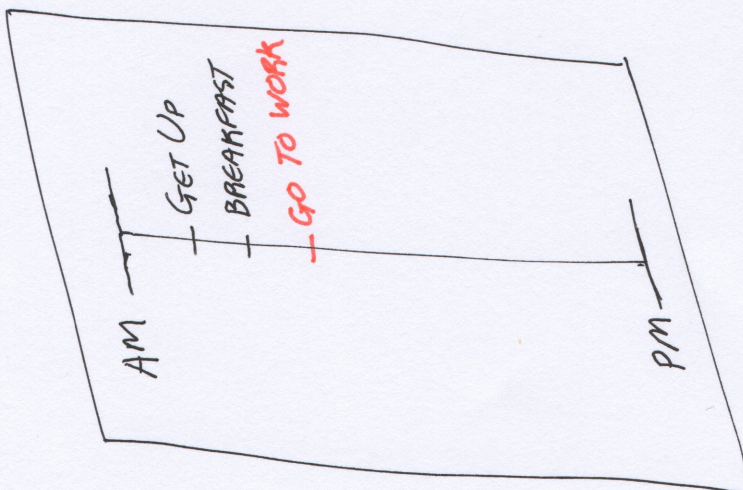 AM
GET UP
BREAKFAST
GO TO WORK
PM